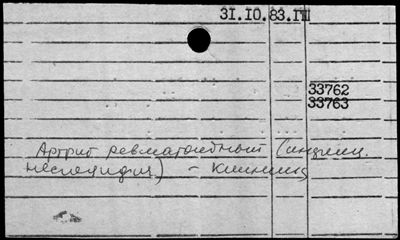 31.10.83.ПІ
33762
33763
Артрит ревматоидный (
неспецифич) - клиника